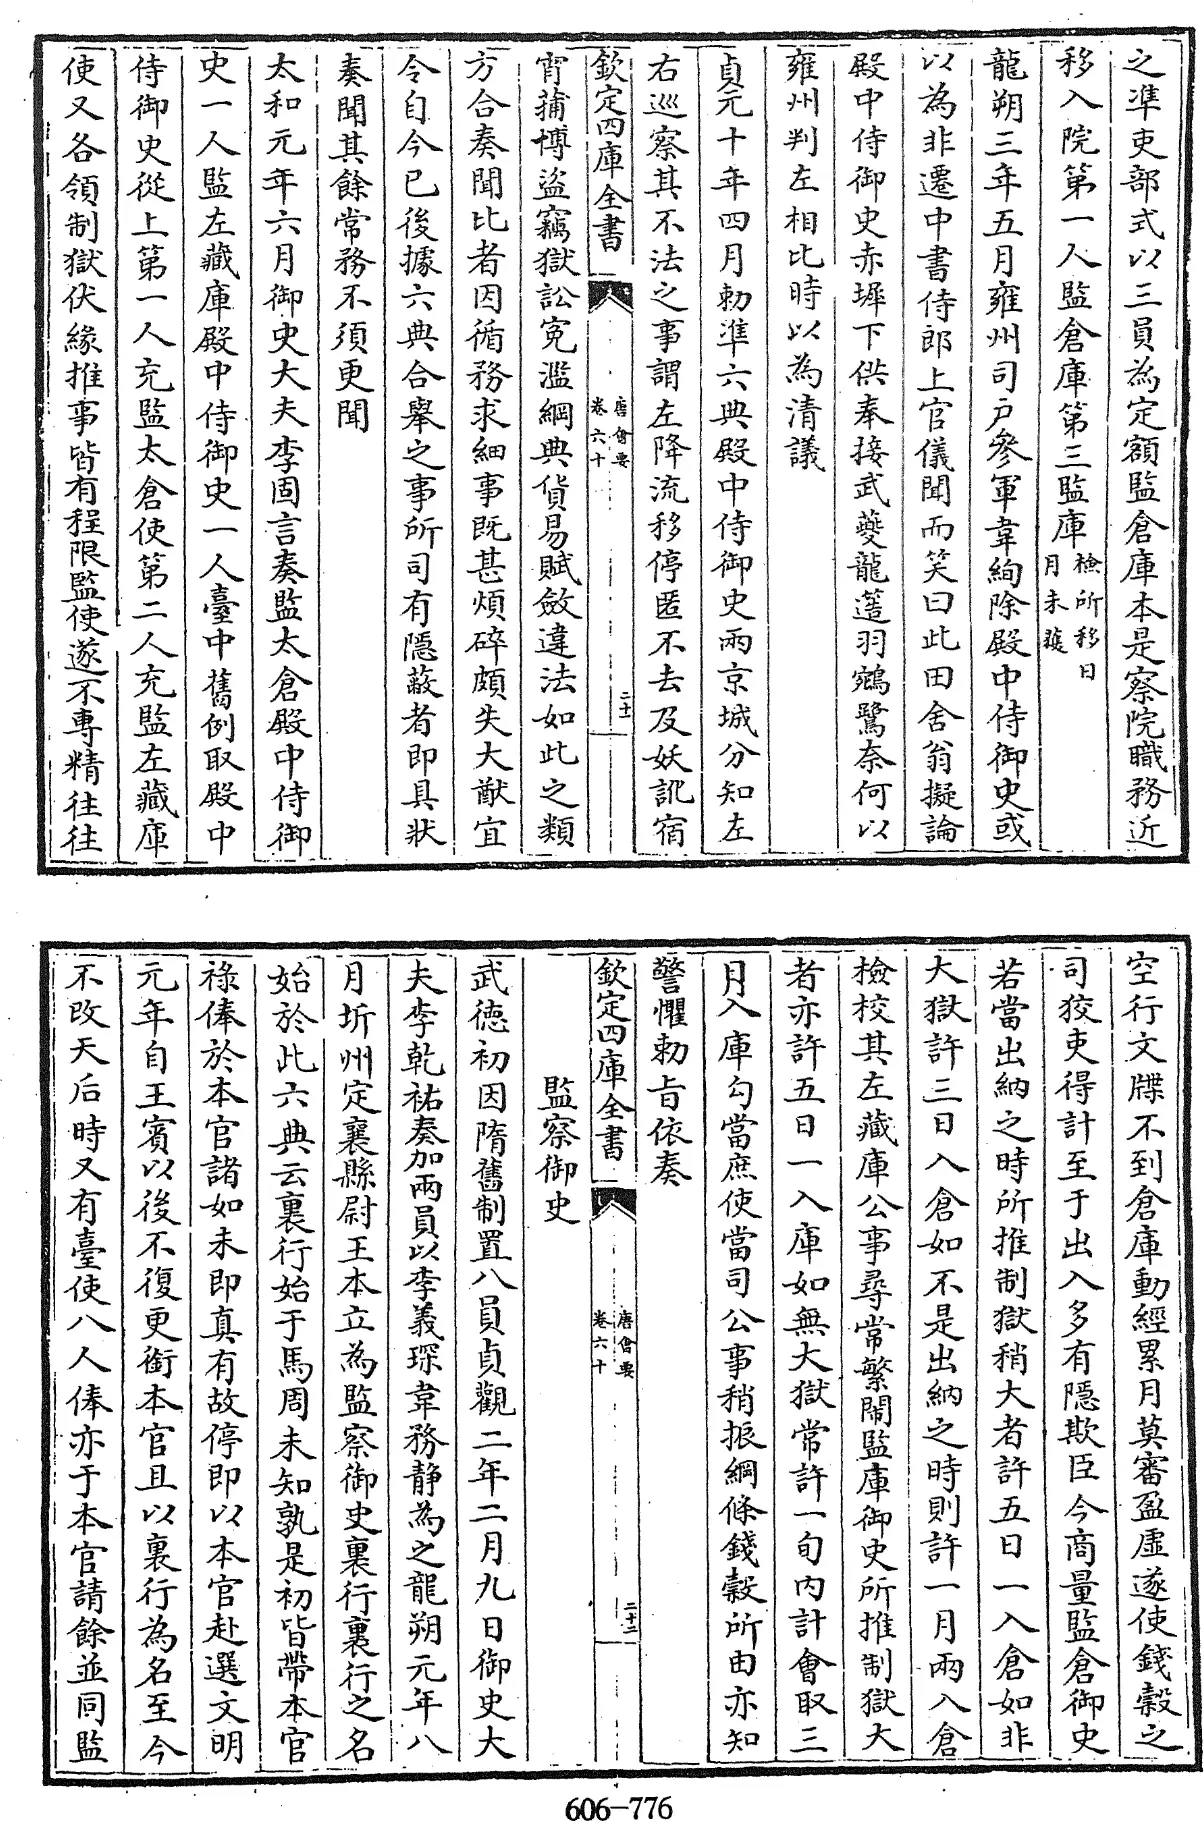 之準吏部式以三員為定額監倉庫本是察院職務近
移入院第一人監倉庫第三監庫檢所移日月未獲
龍朔三年五月雍州司戶參軍韋絢除殿中侍御史或
以為非遷中書侍郎上官儀聞而笑曰此田舍翁擬論
殿中侍御史赤墀下供奉接武夔龍簉羽鵷鷺奈何以
雍州判左相比時以為清議
貞元十年四月勅準六典殿中侍御史兩京城分知左
右巡察其不法之事謂左降流移停匿不去及妖訛宿
欽定四庫全書
唐會要
卷六十
二十一
宵蒱博盜竊獄訟寃濫綱典貨易賦斂違法如此之類
方合奏聞比者因循務求細事既甚煩碎頗失大猷宜
令自今已後據六典合舉之事所司有隱蔽者即具狀
奏聞其餘常務不須更聞
太和元年六月御史大夫李固言奏監太倉殿中侍御
史一人監左藏庫殿中侍御史一人臺中舊例取殿中
侍御史從上第一人充監太倉使第二人充監左藏庫
使又各領制獄伏緣推事皆有程限監使遂不專精往往
空行文牒不到倉庫動經累月莫審盈虛遂使錢穀之
司狡吏得計至于出入多有隱欺臣今商量監倉御史
若當出納之時所推制獄稍大者許五日一入倉如非
大獄許三日入倉如不是出納之時則許一月兩入倉
檢校其左藏庫公事尋常繁閙監庫御史所推制獄大
者亦許五日一入庫如無大獄常許一旬內計會取三
月入庫勾當庶使當司公事稍振綱條錢穀所由亦知
警懼勅旨依奏
欽定四庫全書
唐會要
卷六十
二十二
監察御史
武德初因隋舊制置八員貞觀二年二月九日御史大
夫李乾祐奏加兩員以李義琛韋務靜為之龍朔元年八
月圻州定襄縣尉王本立為監察御史裏行裏行之名
始於此六典云裏行始于馬周未知孰是初皆帶本官
祿俸於本官諸如未即真有故停即以本官赴選文明
元年自王賓以後不復更銜本官且以裏行為名至今
不改天后時又有臺使八人俸亦于本官請餘並同監
606-776